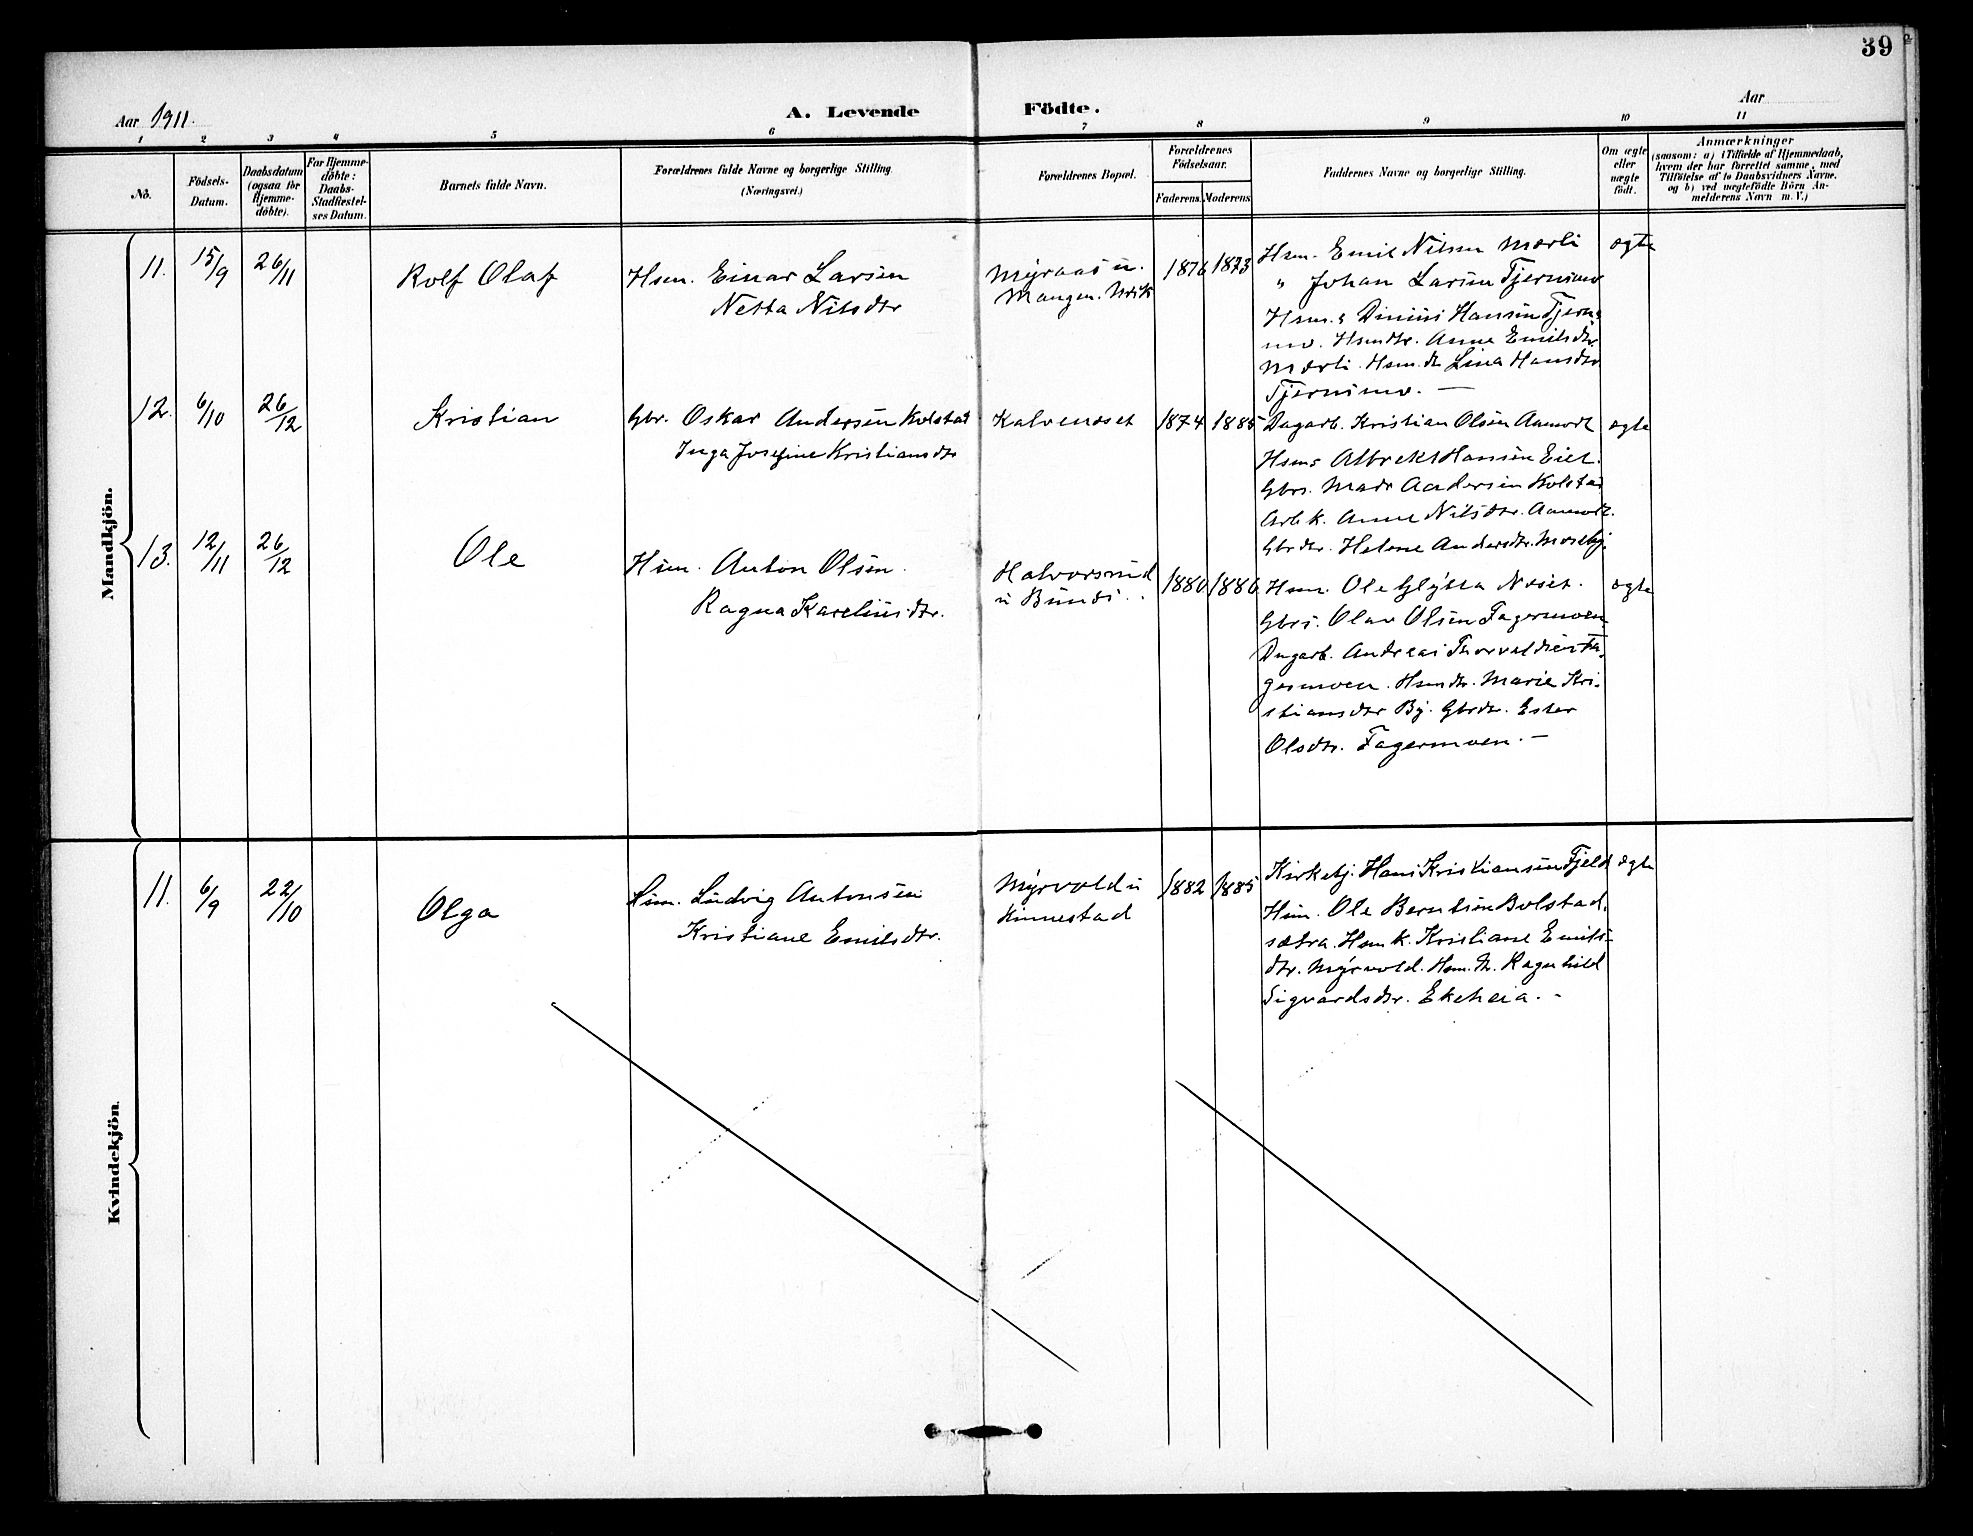 39
Aar 1911.
A. Levende Födte.
Aar
1 2 3 4 5 6 7 8 9 10 11
Nö.
Födsels-Datum.
Daabsdatum (ogsaa for Hjemme-döbte).
For Hjemme-döbte: Daabs-Stadfæstel-ses Datum.
Barnets fulde Navn.
Forældrenes fulde Navne og borgerlige Stilling
(Næringsvei.)
Forældrenes Bopæl.
Forældrenes Födselsaar.
Faderens. Moderens
Faddernes Navne og borgerlige Stilling.
Om ægte eller uægte födt.
Anmærkninger
(saasom: a) i Tilfælde af Hjemmedaab,
hvem der har forrettet samme, med
Tilföielse af to Daabsvidners Navne,
og b) ved uægtefödte Börn An-
melderens Navn m. V.)
Mandkjön.
11. 15/9 26/11
Rolf Olaf
Hsm. Einar Larsen
Netta Nilsdtr
Myraas u.
Mangen
1876 1873
Hsm. Emil Nilsen Mærli
" Johan Larsen Tjernsmo
Hsm.s Hansen Tjerns
mo. Hsmdtr. Anne Emilsdtr.
Mærli. Hsm.dtr Lina Hansdtr
Tjernsmo. —
ægte
12. 6/10 26/12
Kristian
Gbr. Oskar Andersen Kolstad
Inga Josefine Kristiansdtr
1874 1885
Dagarb. Kristian Olsen Aamodt
Hsms Albrekt Hansen Eiet.
Gbrs. Andersen Kolstad
Arb.k. Anne Nilsdtr. Aamodt.
Gbrdtr. Helene Andersdtr. Moseby.
ægte
13. 12/11 26/12
Ole
Hsm. Anton Olsen.
Ragna Kareliusdtr.
Halvorsrud
u Bunes.
1880 1886
Hsm. Ole Næset.
Gbrs. Olav Olsen Fagermoen
Dagarb. Andreas Thorvaldsen Fa-
germoen. Hsmdtr. Marie Kri-
stiansdtr By. Gbrdtr. Ester
Olsdtr. Fagermoen. —
ægte
Kvindekjön.
11. 6/9 22/10
Olga
Hsm. Ludvig Antonsen
Kristiane Emilsdtr.
Myrvold u
Kinnestad
1882 1885
Kirkebj. Hans Kristiansen Fjeld
Hsm. Ole Berntsen Bolstad
sætra. Hsm.k. Kristiane Emils-
dtr. Myrvold. Hsm.dtr. Ragnhild
Sigvardsdtr. Ekeheia. -
ægte